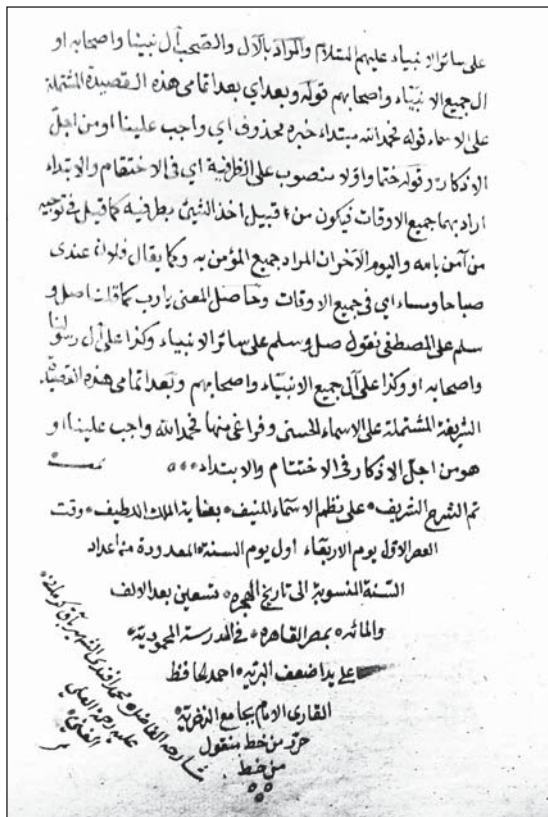 على سائر الانبياء عليهم السلام والمراد بالآل والصحب آل نبينا واصحابه او
آل جميع الانبياء واصحابهم قوله وبعد اي بعد تمامى هذه القصيدة المشتملة
على الاسماء قوله فحمد الله مبتداء خبره محذوف اي واجب علينا او من اجل
الاذكار وقوله ختما واولا منصوب على الظرفية اي فى الاختتام والابتداء
اراد بهما جميع الاوقات فيكون من قبيل اخذ الشيئ بطرفيه كما قيل فى توجيه
من آمن بالله واليوم الآخر ان المراد جميع المؤمن به وكما يقال فلان عندى
صباحا ومساء اي فى جميع الاوقات وحاصل المعنى يارب كما قلت اصل و
سلم على المصطفى نقول صل وسلم على سائر الانبياء وكذا على آل رسولنا
واصحابه او وكذا على آل جميع الانبياء واصحابهم وبعد تمامى هذه القصيدة
الشريفة المشتملة على الاسماء الحسنى وفراغى منها فحمد الله واجب علينا او
هو من اجل الاذكار فى الاختتام والابتداء تمت
تم الشرح الشريف على نظم الاسماء المنيف بعناية الملك اللطيف وقت
العصر الاول يوم الاربعاء اول يوم السنة المعدودة من اعداد
السنة المنسوبة الى تاريخ الهجرة تسعين بعد الالف
والمائة بمصر القاهرة فى المدرسة المحمودية
على يد اضعف البرية احمد الحافظ
القارى الامام بجامع
حرر من خط منقول
من خط
شارحه الفاضل محمد افندى الشهير بآق كرمانى
عليه رحمة العلى
الغنى